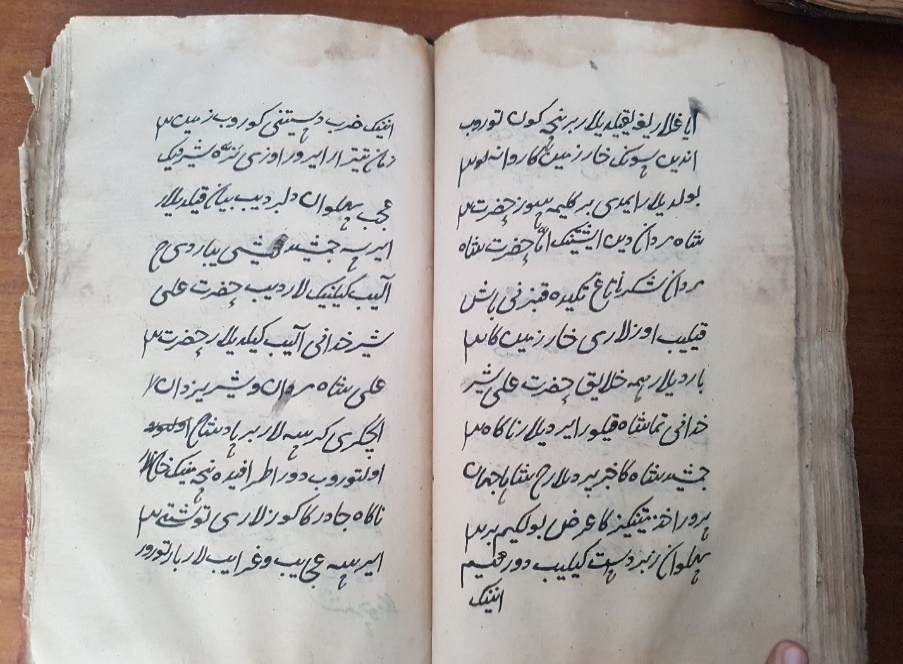 ایاغلاریغه یقیلدیلار بر نچه کون توروب
اندین سونک خار زمین کا روانه
بولدیلار ایمدی بر کلیمه سوز حضرت
شاه مردان دین ایشیتینک حضرت شاه
مردان تکیده قنبرنی باش
قیلیب اوزلاری خار زمین کا
باردیلار همه خلایق حضرت علی شیر
خدانی تماشاه قیلور ایردیلار ناکاه
جمشید شاه کا خبر بردیلار شاها جهان
پرور اخذینکیزکا عرض بولکیم بر
پهلوان زبردست کیلیب دور
انینک
انینک ضرب دستینی کوروب زمین
تیترار ایرور اوزی نره شیردیک
عجب پهلوان دلبر دیب بیان قیلدیلار
ایرسه جمشید کیشی یباردی
آلیب کیلینک لار دیب حضرت علی
شیر خدانی آلیب کیلدیلار حضرت
علی شاه مردان و شیر یزدان
ایچکری کرسه لار بر پادشاح
اولتوروب دور اطرافیده نچه مینک
ناکاه جادر کا کوزلاری توشتی
ایرسه عجایب و غرایب لار بار تورور